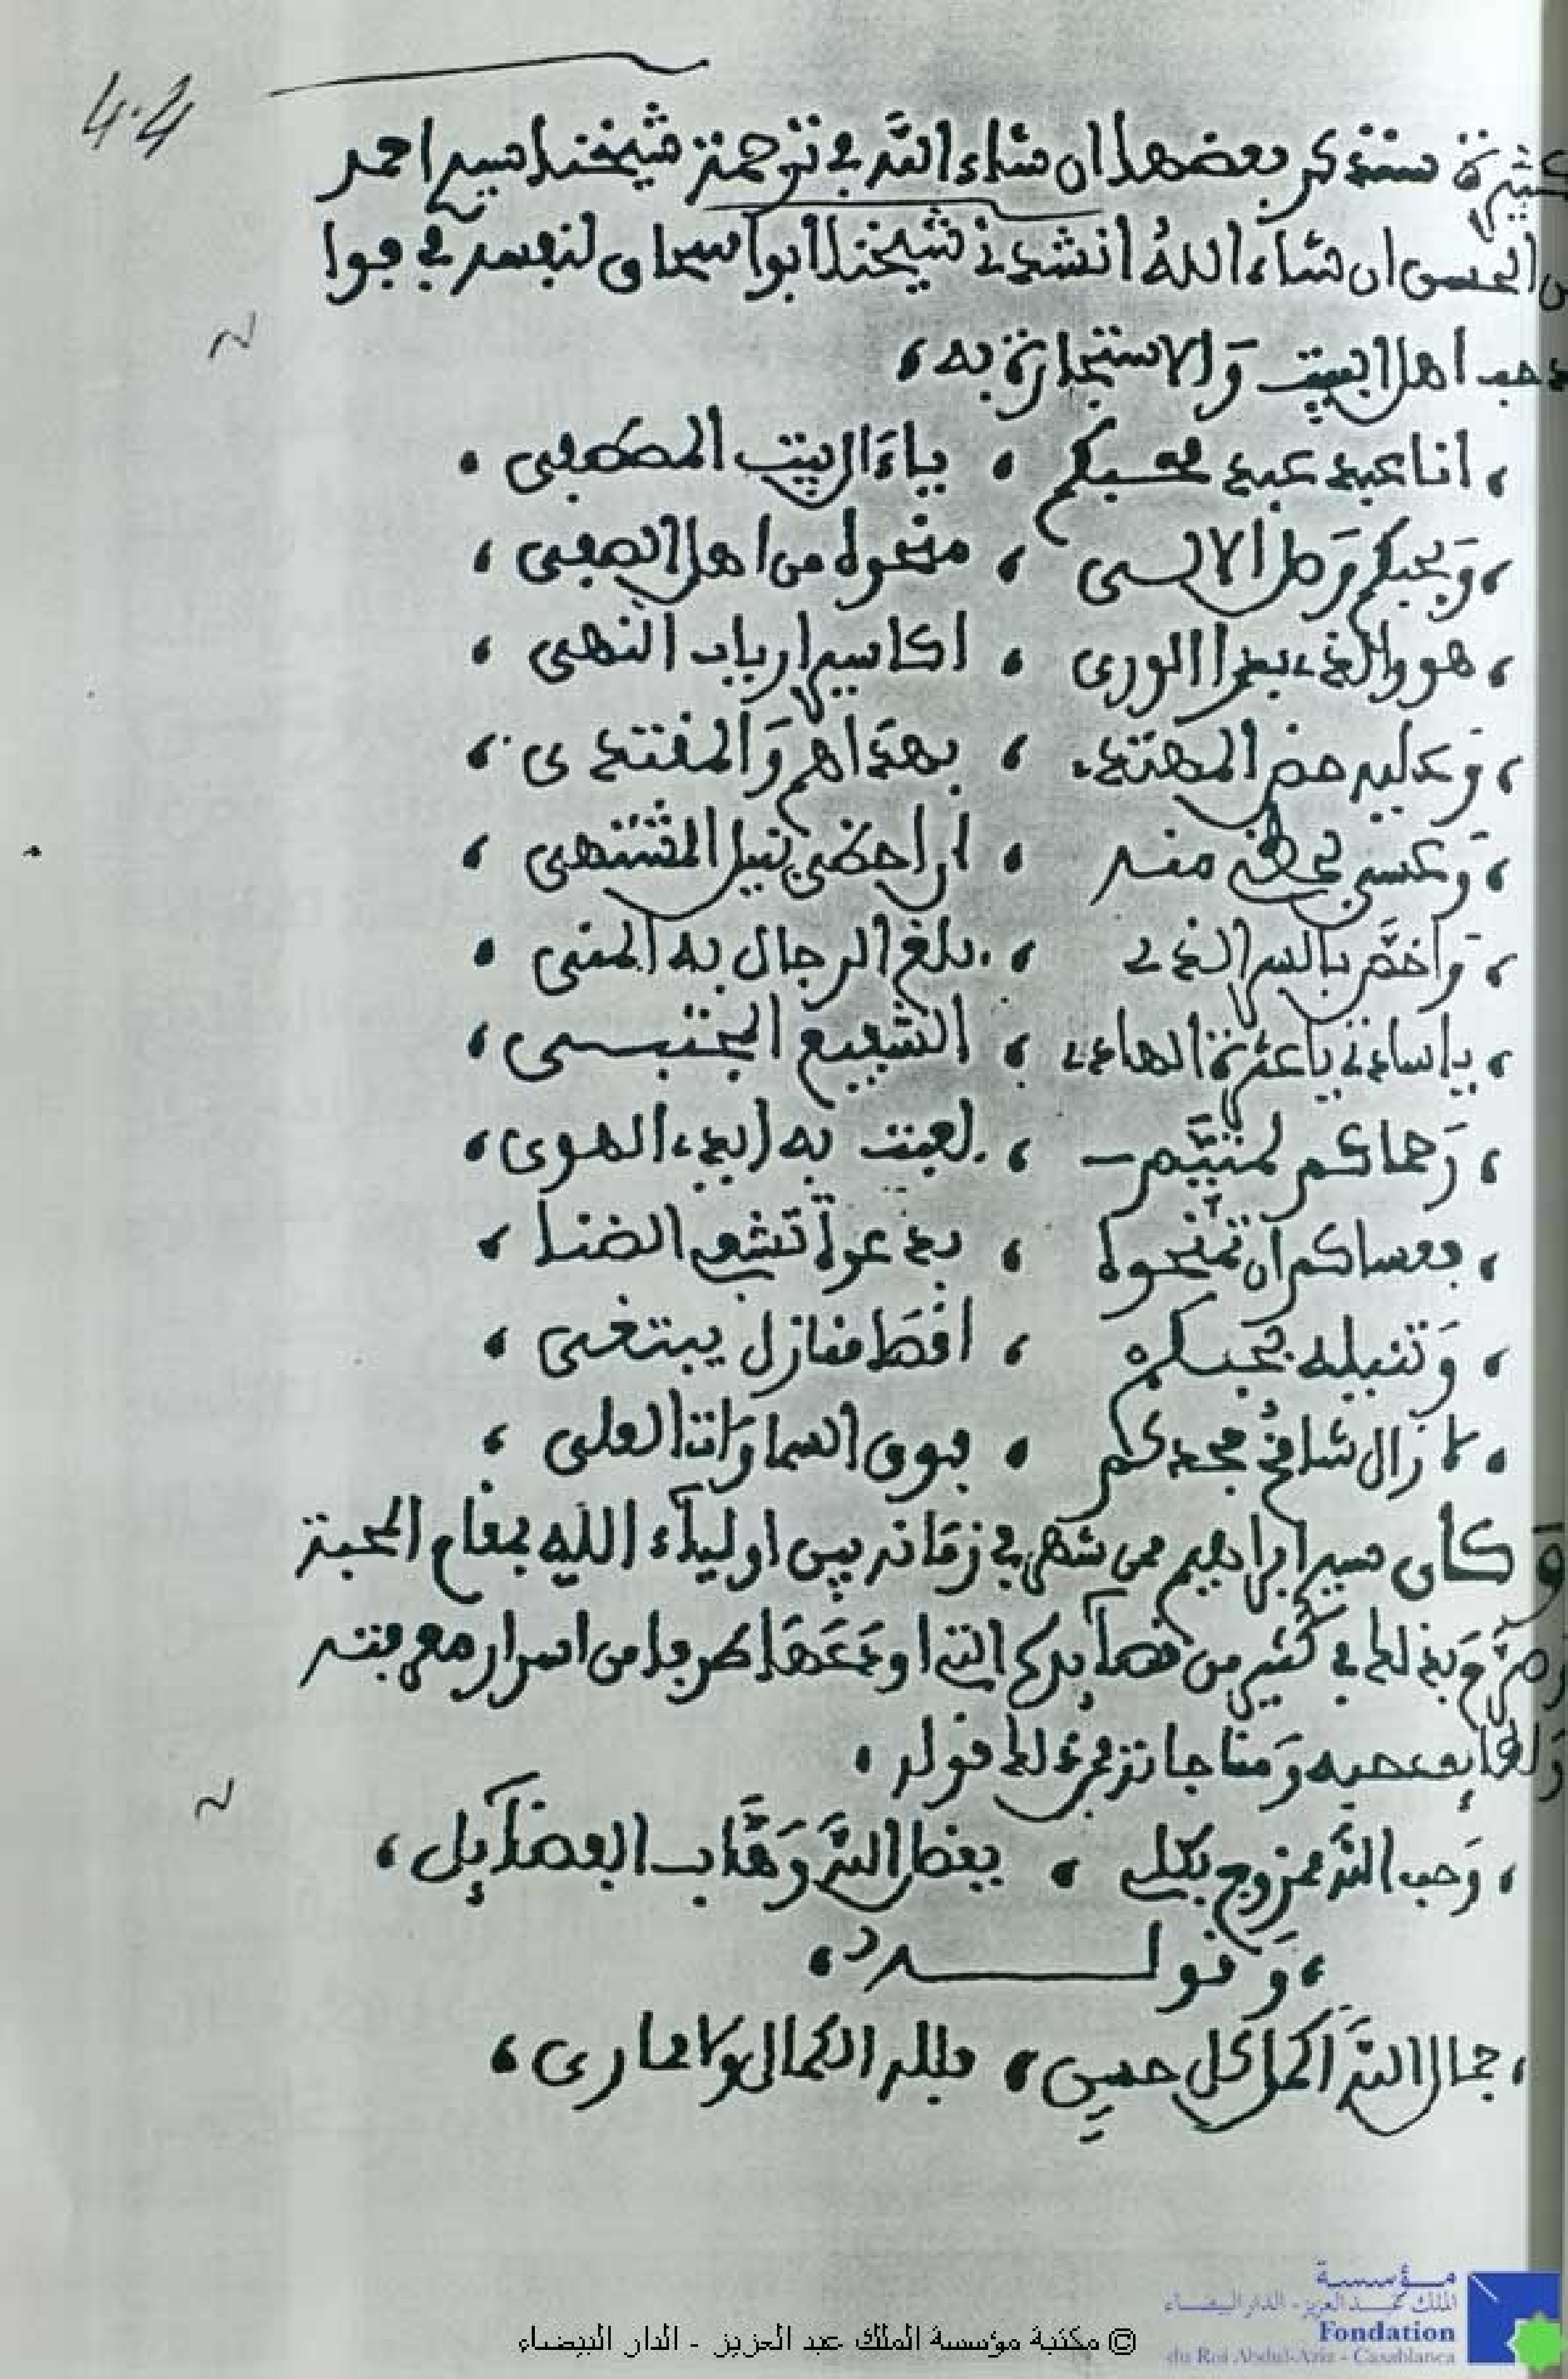 4.4
كثيرة سنذكر بعضها ان شاء الله في ترجمة شيخنا سيد احمد
الحسن ان شاء الله انشدني شيخنا ابو اسحاق لنفسه في
حب اهل البيت وَالاستجارة به،
، انا عبد عبد محبكم ، ياءَال بيت المصطفى ،
، وَبحبكم وَصل الالى ، منحوه من اهل الصفى ،
، هو والذي بدأ الورى ، اكاسير ارباب النهى ،
، وَعليه حض المهتدي ، بهداهم وَالمقتدى ،
، وَعسى لحظي منه ، ان احظى بنيل المشتهى ،
، وَاخصّ بالسر الذي ، بلغ الرجال به المنى ،
، ياسادتي ياعترة الهادي ، الشفيع المجتبى ،
، رَحماكم لمتيَّم ، لعبت به ايدي الهوى ،
، فعساكم ان تمنحوه ، بدعوة تشف الضنا ،
، وَتنيله بحبكم ، اقصا منازل يبتغى ،
، لا زال شامخ مجدكم ، فوق السماوَات العلى ،
وَكان سيد ابراهيم ممن شهر في زمانه بين اوليآء الله بمقام المحبة
وَصرّح بذلك في كثير من قصآئده التي اودعها طرفا من اسرار معرفته
وَلطايف حبه وَمناجاته فمن ذلك قوله ،
، وَحب الله ممزوج بكلي ، بفضل الله وَهَّاب الفضآئل ،
، وَقولـــه ،
، جمال الله اكمل كل حسن ، فلله الكمال ولا ممارى ،
مؤسسة
الملك عبد العزيز - الدار البيضاء
Fondation
du Roi Abdul-Aziz - Casablanca
© مكتبة مؤسسة الملك عبد العزيز - الدار البيضاء